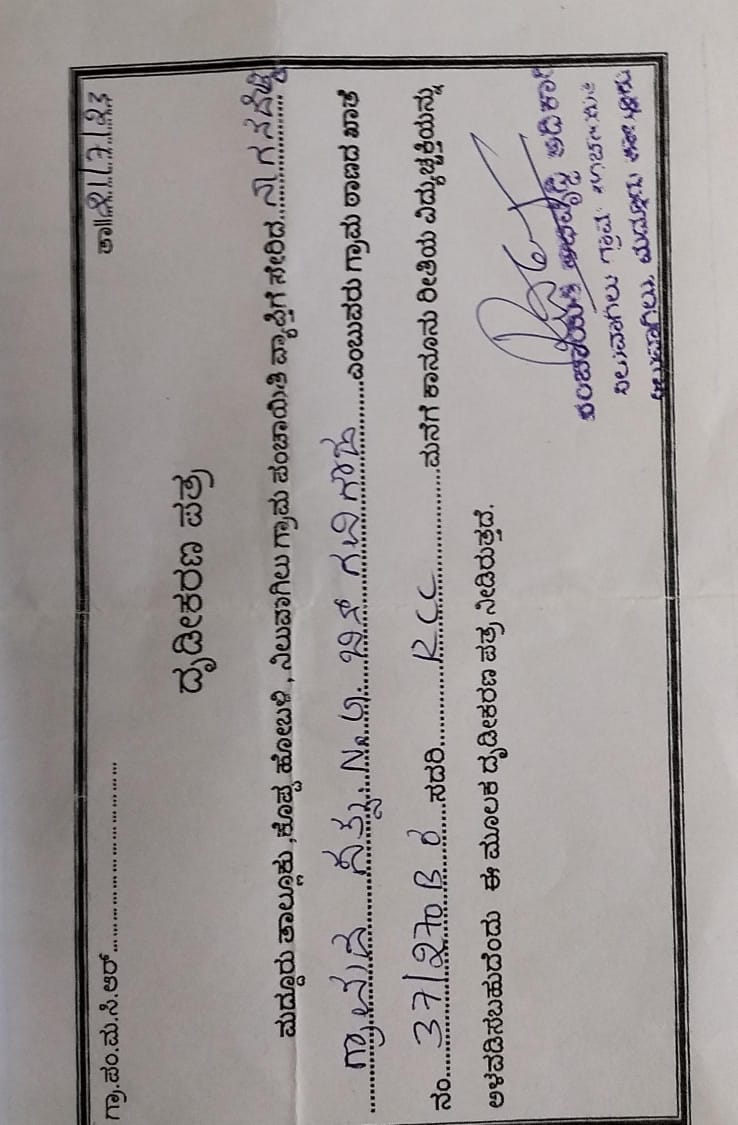 ಗ್ರಾ.ಪಂ.ಮ.ಸಿ.ಆರ್............................ ತಾ||21/7/23
ದೃಡೀಕರಣ ಪತ್ರ
ಮದ್ದೂರು ತಾಲ್ಲೂಕು ,ಕೊಪ್ಪ ಹೋಬಳಿ , ನಿಲುವಾಗಿಲು ಗ್ರಾಮ ಪಂಚಾಯಿತಿ ವ್ಯಾಪ್ತಿಗೆ ಸೇರಿದ
ಗ್ರಾಮದ N.G. ಬಿನ್ ಗವಿಗೌಡ ಎಂಬುವರು ಗ್ರಾಮ ಠಾಣದ ಖಾತೆ
ನಂ 37/270B ರ ಸದರಿ RCC ಮನೆಗೆ ಕಾನೂನು ರೀತಿಯ ವಿದ್ಯುಚ್ಛಕ್ತಿಯನ್ನು
ಅಳವಡಿಸಬಹುದೆಂದು ಈ ಮೂಲಕ ದೃಡೀಕರಣ ಪತ್ರ ನೀಡಿರುತ್ತದೆ.
ಪಂಚಾಯಿತಿ ಅಭಿವೃದ್ಧಿ ಅಧಿಕಾರಿ
ನಿಲುವಾಗಿಲು ಗ್ರಾಮ ಪಂಚಾಯಿತಿ
ನಿಲುವಾಗಿಲು, ಮದ್ದೂರು ತಾಲ್ಲೂಕು